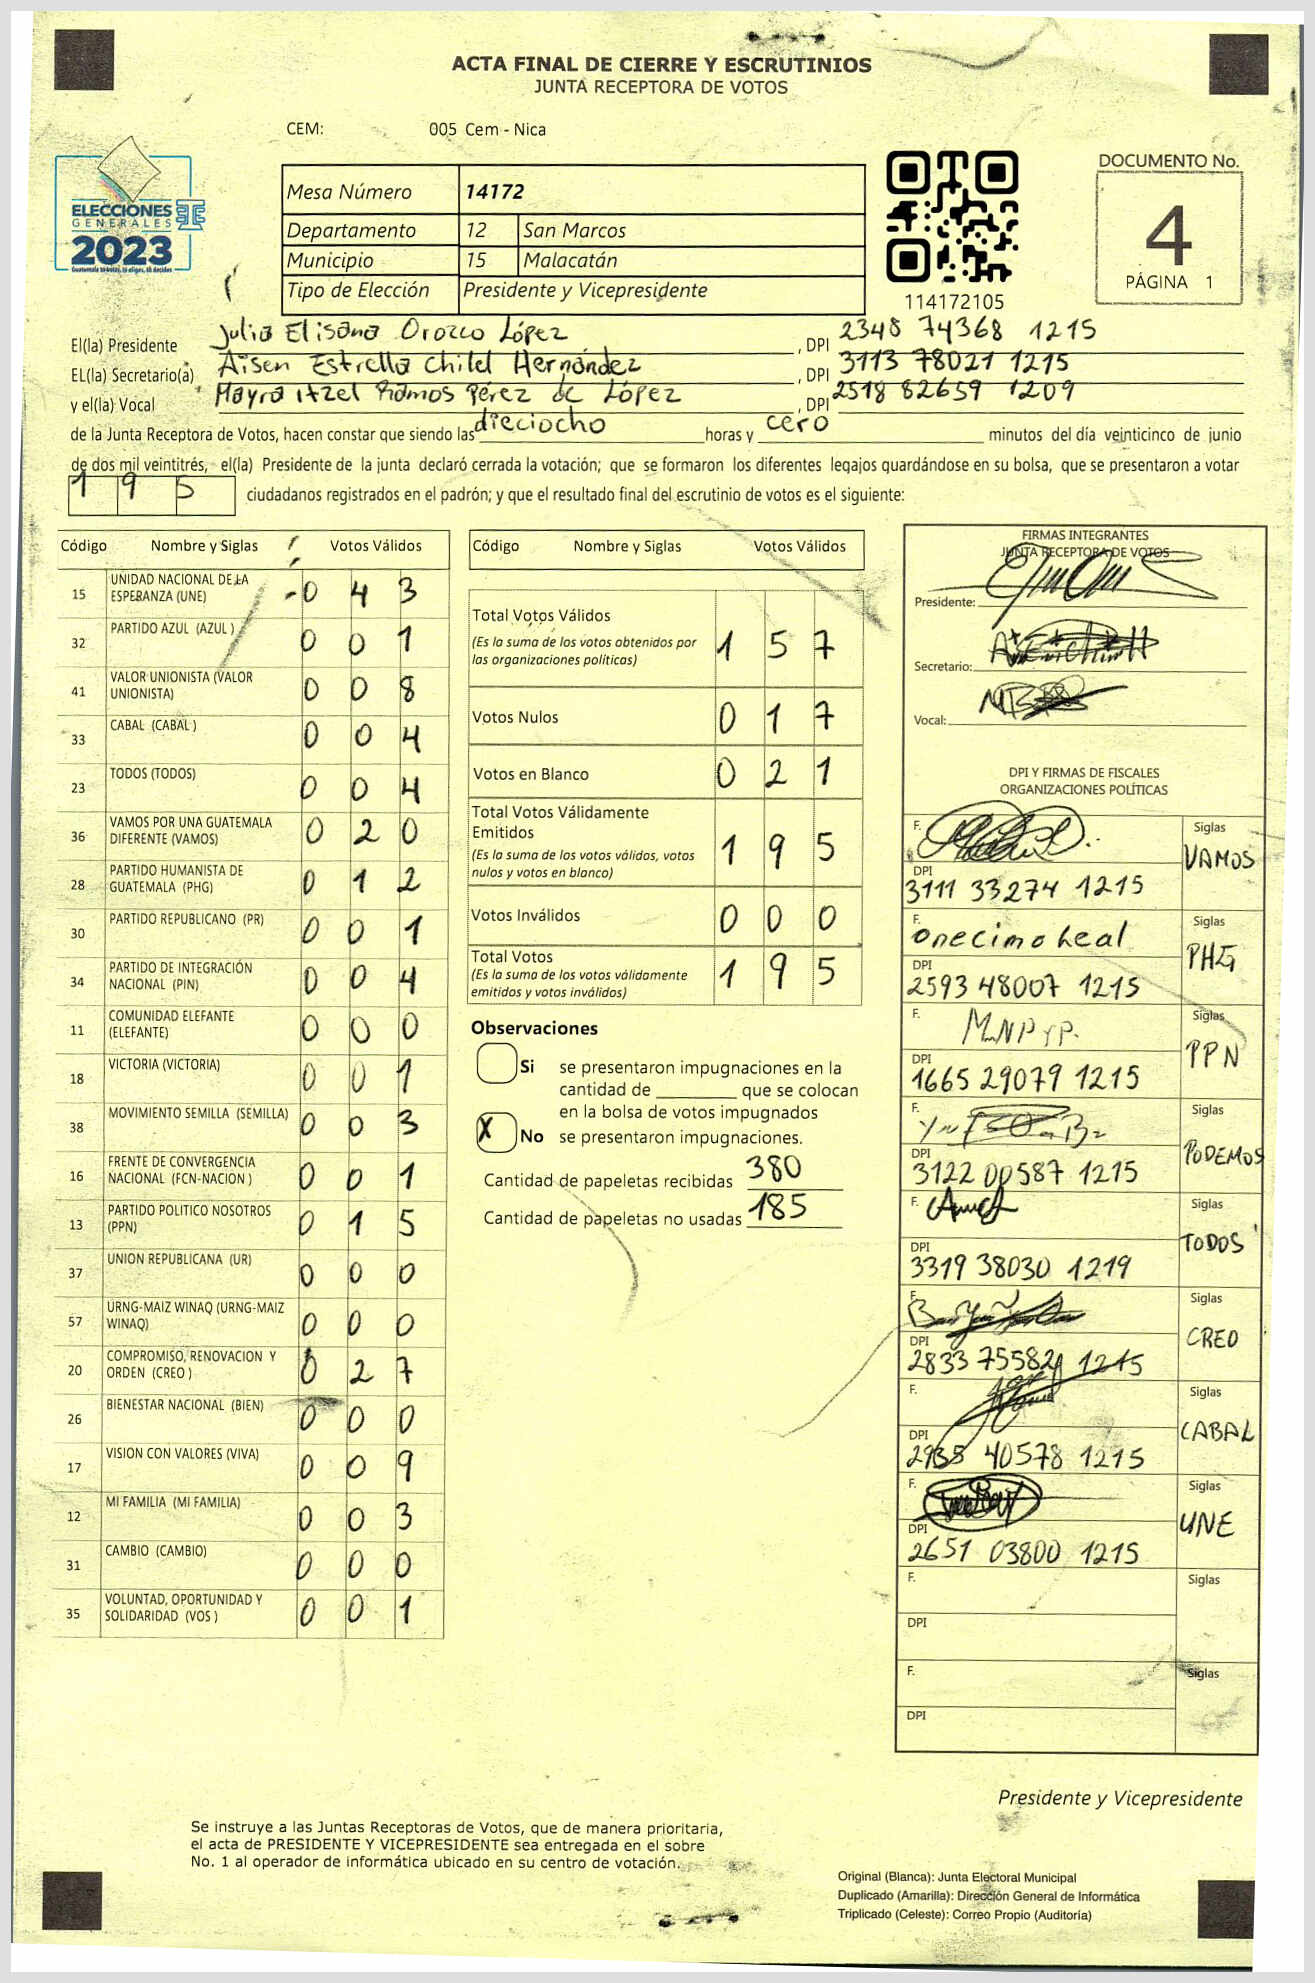 ACTA FINAL DE CIERRE Y ESCRUTINIOS
JUNTA RECEPTORA DE VOTOS
CEM: 005 Cem - Nica
ELECCIONES
GENERALES
2023
Mesa Número 14172
Departamento 12 San Marcos
Municipio 15 Malacatán
Tipo de Elección Presidente y Vicepresidente
114172105
DOCUMENTO No.
4
PÁGINA 1
El(la) Presidente Julia Elisana Orozco López, DPI 2348 74368 1215
EL(la) Secretario(a) Aisen Estrella Chilel Hernández, DPI 3113 78021 1215
y el(la) Vocal Mayra itzel Ramos Pérez de López, DPI 2518 82659 1209
de la Junta Receptora de Votos, hacen constar que siendo las dieciocho horas y cero minutos del día veinticinco de junio
de dos mil veintitrés, el(la) Presidente de la junta declaró cerrada la votación; que se formaron los diferentes legajos guardándose en su bolsa, que se presentaron a votar
195 ciudadanos registrados en el padrón; y que el resultado final del escrutinio de votos es el siguiente:
Código Nombre y Siglas Votos Válidos
15 UNIDAD NACIONAL DE LA ESPERANZA (UNE) 0 4 3
32 PARTIDO AZUL (AZUL ) 0 0 1
41 VALOR UNIONISTA (VALOR UNIONISTA) 0 0 8
33 CABAL (CABAL ) 0 0 4
23 TODOS (TODOS) 0 0 4
36 VAMOS POR UNA GUATEMALA DIFERENTE (VAMOS) 0 2 0
28 PARTIDO HUMANISTA DE GUATEMALA (PHG) 0 1 2
30 PARTIDO REPUBLICANO (PR) 0 0 1
34 PARTIDO DE INTEGRACIÓN NACIONAL (PIN) 0 0 4
11 COMUNIDAD ELEFANTE (ELEFANTE) 0 0 0
18 VICTORIA (VICTORIA) 0 0 1
38 MOVIMIENTO SEMILLA (SEMILLA) 0 0 3
16 FRENTE DE CONVERGENCIA NACIONAL (FCN-NACION ) 0 0 1
13 PARTIDO POLITICO NOSOTROS (PPN) 0 1 5
37 UNION REPUBLICANA (UR) 0 0 0
57 URNG-MAIZ WINAQ (URNG-MAIZ WINAQ) 0 0 0
20 COMPROMISO, RENOVACION Y ORDEN (CREO ) 0 2 7
26 BIENESTAR NACIONAL (BIEN) 0 0 0
17 VISION CON VALORES (VIVA) 0 0 9
12 MI FAMILIA (MI FAMILIA) 0 0 3
31 CAMBIO (CAMBIO) 0 0 0
35 VOLUNTAD, OPORTUNIDAD Y SOLIDARIDAD (VOS ) 0 0 1
Código Nombre y Siglas Votos Válidos
Total Votos Válidos
(Es la suma de los votos obtenidos por
las organizaciones políticas) 1 5 7
Votos Nulos 0 1 7
Votos en Blanco 0 2 1
Total Votos Válidamente
Emitidos
(Es la suma de los votos válidos, votos
nulos y votos en blanco) 1 9 5
Votos Inválidos 0 0 0
Total Votos
(Es la suma de los votos válidamente
emitidos y votos inválidos) 1 9 5
Observaciones
Si se presentaron impugnaciones en la
cantidad de ________ que se colocan
en la bolsa de votos impugnados
X No se presentaron impugnaciones.
Cantidad de papeletas recibidas 380
Cantidad de papeletas no usadas 185
FIRMAS INTEGRANTES
JUNTA RECEPTORA DE VOTOS
Presidente:
Secretario:
Vocal:
DPI Y FIRMAS DE FISCALES
ORGANIZACIONES POLÍTICAS
F. Siglas VAMOS
DPI 3111 33274 1215
F. onecimo Leal Siglas PHG
DPI 2593 48007 1215
F. Siglas PPN
DPI 1665 29079 1215
F. Siglas PODEMOS
DPI 3122 00587 1215
F. Siglas TODOS
DPI 3319 38030 1219
F. Siglas CREO
DPI 2833 75582 1215
F. Siglas CABAL
DPI 2935 40578 1215
F. Siglas UNE
DPI 2651 03800 1215
F. Siglas
DPI
F. Siglas
DPI
Presidente y Vicepresidente
Se instruye a las Juntas Receptoras de Votos, que de manera prioritaria,
el acta de PRESIDENTE Y VICEPRESIDENTE sea entregada en el sobre
No. 1 al operador de informática ubicado en su centro de votación.
Original (Blanca): Junta Electoral Municipal
Duplicado (Amarilla): Dirección General de Informática
Triplicado (Celeste): Correo Propio (Auditoría)